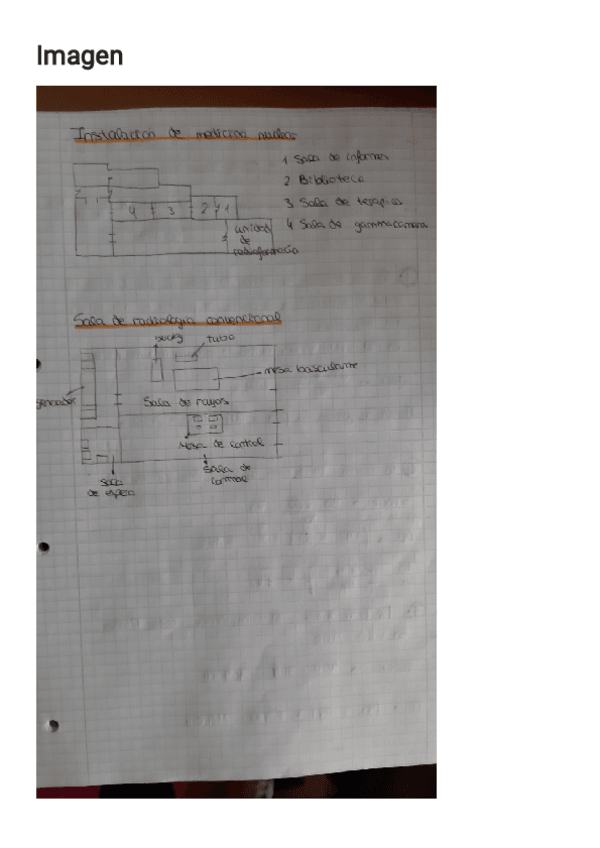 Imagen
Instalación de medicina nuclear
1 Sala de informes
2 Biblioteca
3 Sala de terapia
4 Sala de gammacamara
4 3 2 1
unidad
de
radiofarmacia
Sala de radiología convencional
bucky tubo
mesa basculante
generador
Sala de rayos
Mesa de control
Sala
de espera
Sala de
control